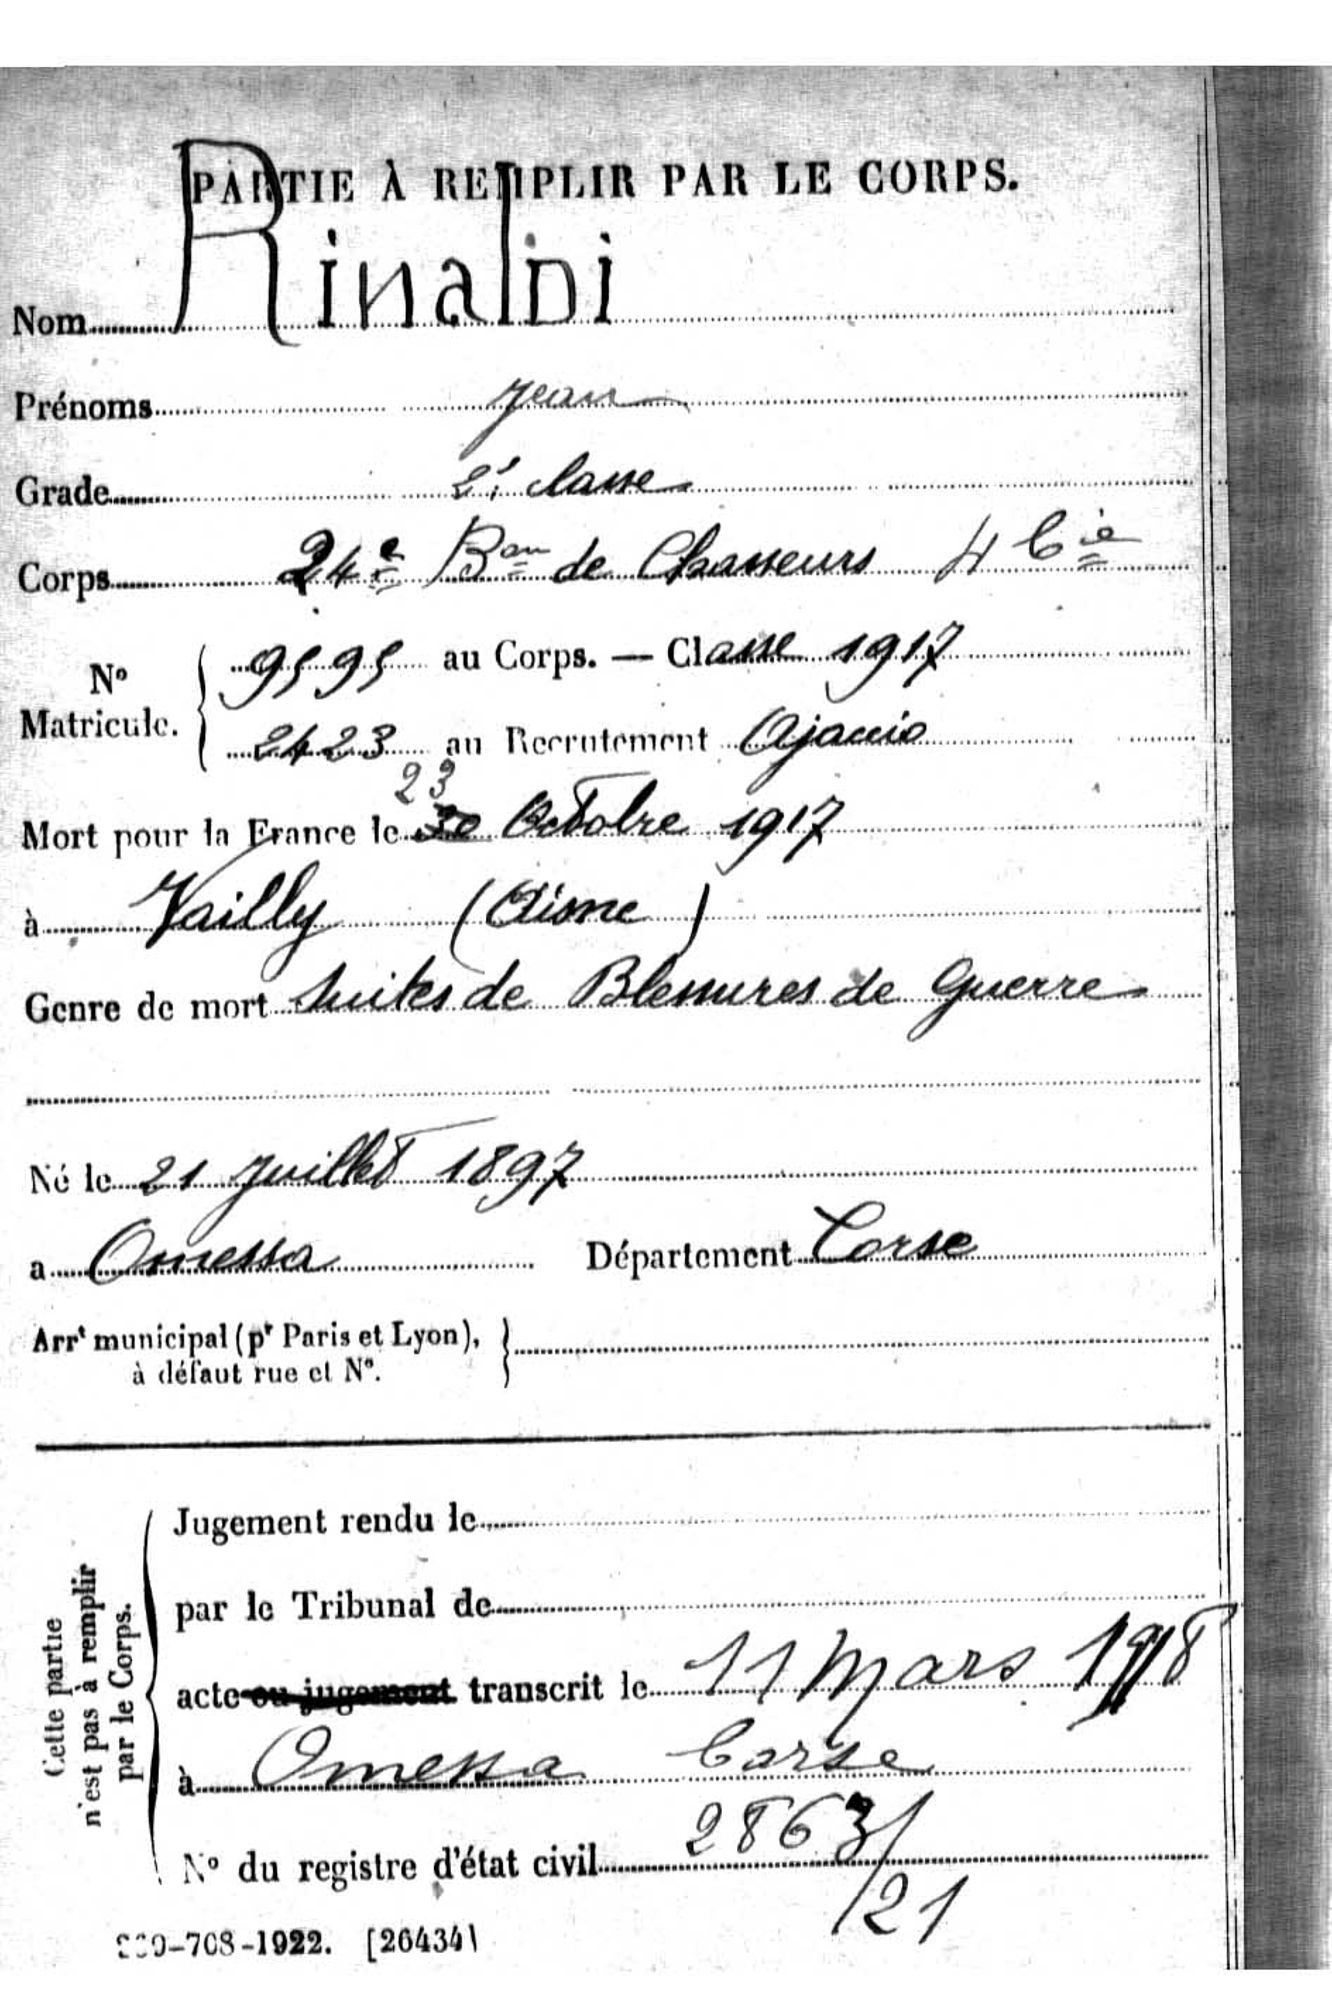 PARTIE À REMPLIR PAR LE CORPS.
Nom Rinaldi
Prénoms Jean
Grade 2e classe
Corps 24e Bon de Chasseurs 4 Cie
No Matricule. { 9595 au Corps. — Classe 1917
2423 au Recrutement Ajaccio
23
Mort pour la France le 30 Octobre 1917
à Vailly (Aisne)
Genre de mort Suites de Blessures de Guerre
Né le 21 Juillet 1897
a Omessa Département Corse
Arrt municipal (pr Paris et Lyon), }
à défaut rue et No.
Cette partie
n'est pas à remplir
par le Corps.
Jugement rendu le
par le Tribunal de
acte ou jugement transcrit le 11 Mars 1918
à Omessa Corse
No du registre d'état civil 2863/
/21
-708-1922. [26434]